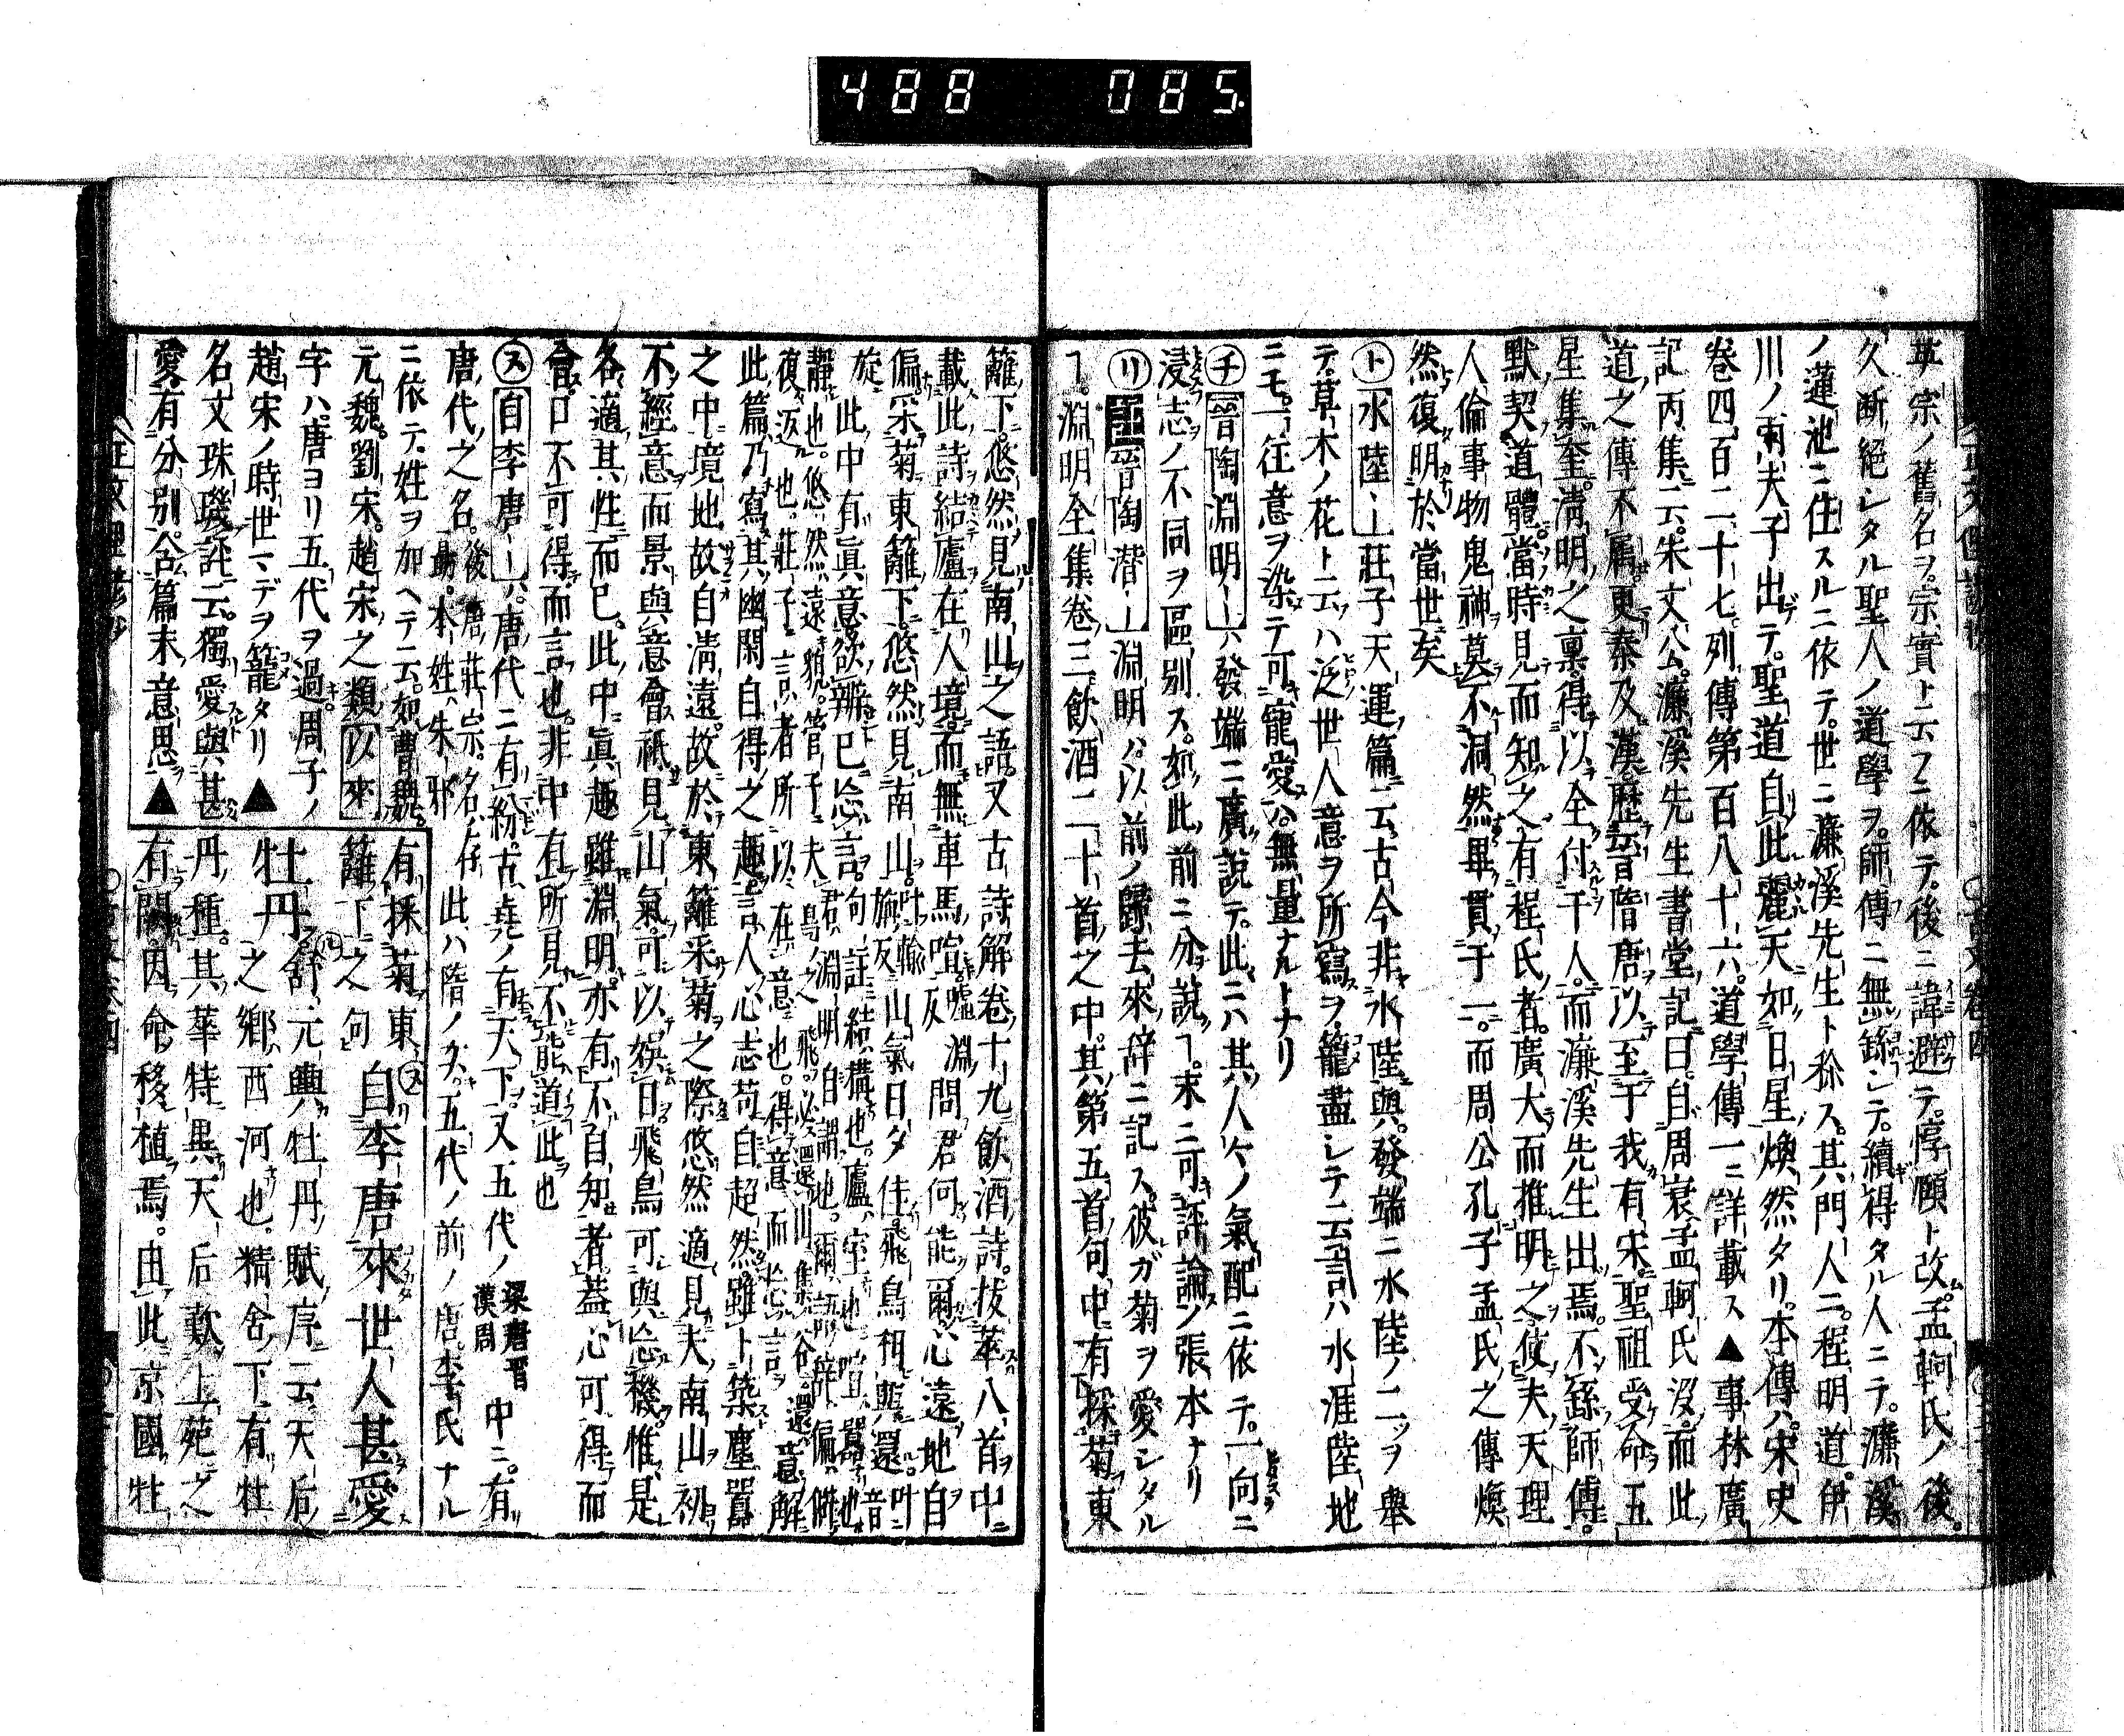 488 085
英宗ノ舊名ヲ宗實ト云フニ依テ後ニ諱避テ惇頤ト改ム孟軻氏ノ後
久断絕シタル聖人ノ道學ヲ師傳ニ無繇シテ續得タル人ニテ濂溪
ノ蓮池ニ住スルニ依テ世ニ濂溪先生ト称ス其門人ニ程明道伊
川ノ兩夫子出デテ聖道自此麗天如日星煥然タリ本傳ハ宋史
卷四百二十七列傳第百八十六道學傳一ニ詳載ス▲事林廣
記丙集云朱文公濂溪先生書堂記曰自周衰孟軻氏沒而此
道之傳不属更秦及漢歷晉隋唐以至于我有宋聖祖受命五
星集奎淸明之稟得以全付于人而濂溪先生出焉不繇師傳
默契道體當時見而知之有程氏者廣大而推明之使夫天理
人倫事物鬼神莫不洞然畢貫于一而周公孔子孟氏之傳煥
然復明於當世矣
㋣水陸ー莊子天運篇云古今非水陸與發端ニ水陸ノ二ツヲ舉
テ草木ノ花ト云ハ泛世人意ヲ所寫ヲ籠盡シテ云言ハ水涯陸地
ニモ一往意ヲ染テ可寵愛ハ無量ナルトナリ
㋠晉陶淵明ーハ發端ニ廣說テ此ニハ其人々ノ氣配ニ依テ一向ニ
浸志ノ不同ヲ區別ス如此前ニ分說ヿ末ニ可評論ノ張本ナリ
㋷晉陶潛ー淵明ハ以前ノ歸去來辞ニ記ス彼ガ菊ヲ愛シタル
ヿ淵明全集卷三飲酒二十首之中其第五首句中有採菊東
籬下悠然見南山之語又古詩解卷十九飲酒詩拔萃八首中
載此詩結廬在人境而無車馬喧叶嘘淵反問君何能爾心遠地自
偏采菊東籬下悠然見南山叶輸旃反山氣日夕佳飛鳥相與還叶音
旋此中有眞意欲辨已忘言句註結構也廬室也喧囂也偏僻
靜也悠然遠貌管子夫鳥之飛必還山集谷還意解
復返也莊子言者所以在意也得意而忘言
此篇乃寫其幽閑自得之趣言人心志苟自超然雖卜築塵囂
之中境地故自淸遠故於東籬采菊之際悠然適見夫南山初
不經意而景與意會祇見山氣可以娛日飛鳥可與忘機惟是
各適其性而已此中眞趣雖淵明亦有不自知者蓋心可得而
會口不可得而言也非中有所見不能道此也
㋦自李唐ーハ唐代ニ有紛古堯ノ有天下又五代ノ梁唐晋漢周中ニ有
唐代之名後唐莊宗名存勗本姓朱邪此ハ隋ノ次五代ノ前ノ唐李氏ナル
ニ依テ姓ヲ加ヘテ云如曹魏
元魏劉宋趙宋之類以來
字ハ唐ヨリ五代ヲ過周子ノ
趙宋ノ時世マデヲ籠タリ▲
名文珠璣註云獨愛與甚
愛有分別含篇末意思▲
有採菊東
籬下之句㋦自李唐來世人甚愛
牡丹㋸舒元輿牡丹賦序云天后
之鄉西河也精舍下有牡
丹種其華特異天后歎上苑之
有闕因命移植焉由此京國牡